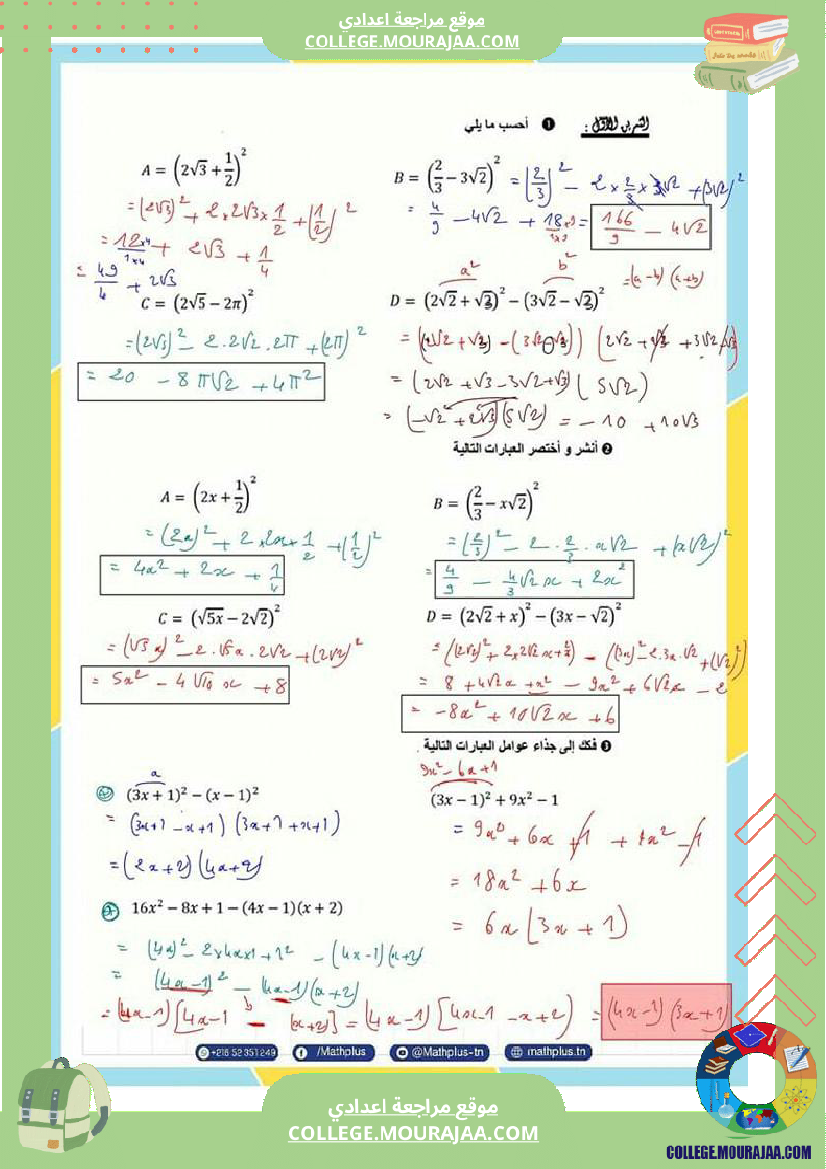 موقع مراجعة اعدادي
COLLEGE.MOURAJAA.COM
التمرين الأوّل : ❶ أحسب ما يلي
A = (2√3 + 1/2)²
= (2√3)² + 2×2√3×1/2 + (1/2)²
= 12×4/1×4 + 2√3 + 1/4
= 49/4 + 2√3
B = (2/3 − 3√2)² = (2/3)² − 2×2/3×3√2 + (3√2)²
= 4/9 − 4√2 + 18×9/1×9 = 166/9 − 4√2
C = (2√5 − 2π)²
= (2√5)² − 2·2√2·2π + (2π)²
= 20 − 8π√2 + 4π²
a² b² = (a−b)(a+b)
D = (2√2 + √3)² − (3√2 − √3)²
= (2√2 + √3) − (3√2 − √3)) (2√2 + √3 + 3√2 − √3)
= (2√2 + √3 − 3√2 + √3) (5√2)
= (−√2 + 2√3)(5√2) = −10 + 10√3
❷ أنشر و أختصر العبارات التالية
A = (2x + 1/2)²
= (2x)² + 2×2x×1/2 + (1/2)²
= 4x² + 2x + 1/4
B = (2/3 − x√2)²
= (2/3)² − 2·2/3·x√2 + (x√2)²
= 4/9 − 4/3√2x + 2x²
C = (√5x − 2√2)²
= (√5x)² − 2·√5x·2√2 + (2√2)²
= 5x² − 4√10x + 8
D = (2√2 + x)² − (3x − √2)²
= ((2√2)² + 2×2√2x + x²) − ((3x)² − 2·3x·√2 + (√2)²)
= 8 + 4√2x + x² − 9x² + 6√2x − 2
= −8x² + 10√2x + 6
❸ فكك إلى جذاء عوامل العبارات التالية .
a
(3x + 1)² − (x − 1)²
= (3x+1 −x+1) (3x+1+x+1)
= (2x+2)(4x+2)
9x² − 6x + 1
(3x − 1)² + 9x² − 1
= 9x² + 6x + 1 + 9x² − 1
= 18x² + 6x
= 6x (3x + 1)
16x² − 8x + 1 − (4x − 1)(x + 2)
= (4x)² − 2×4x×1 + 1² − (4x−1)(x+2)
= (4x−1)² − (4x−1)(x+2)
= (4x−1) [4x−1 − (x+2)] = (4x−1) [4x−1 −x+2) = (4x−1)(3x+1)
+216 52 351 249 /Mathplus @Mathplus-tn mathplus.tn
موقع مراجعة اعدادي
COLLEGE.MOURAJAA.COM
COLLEGE.MOURAJAA.COM